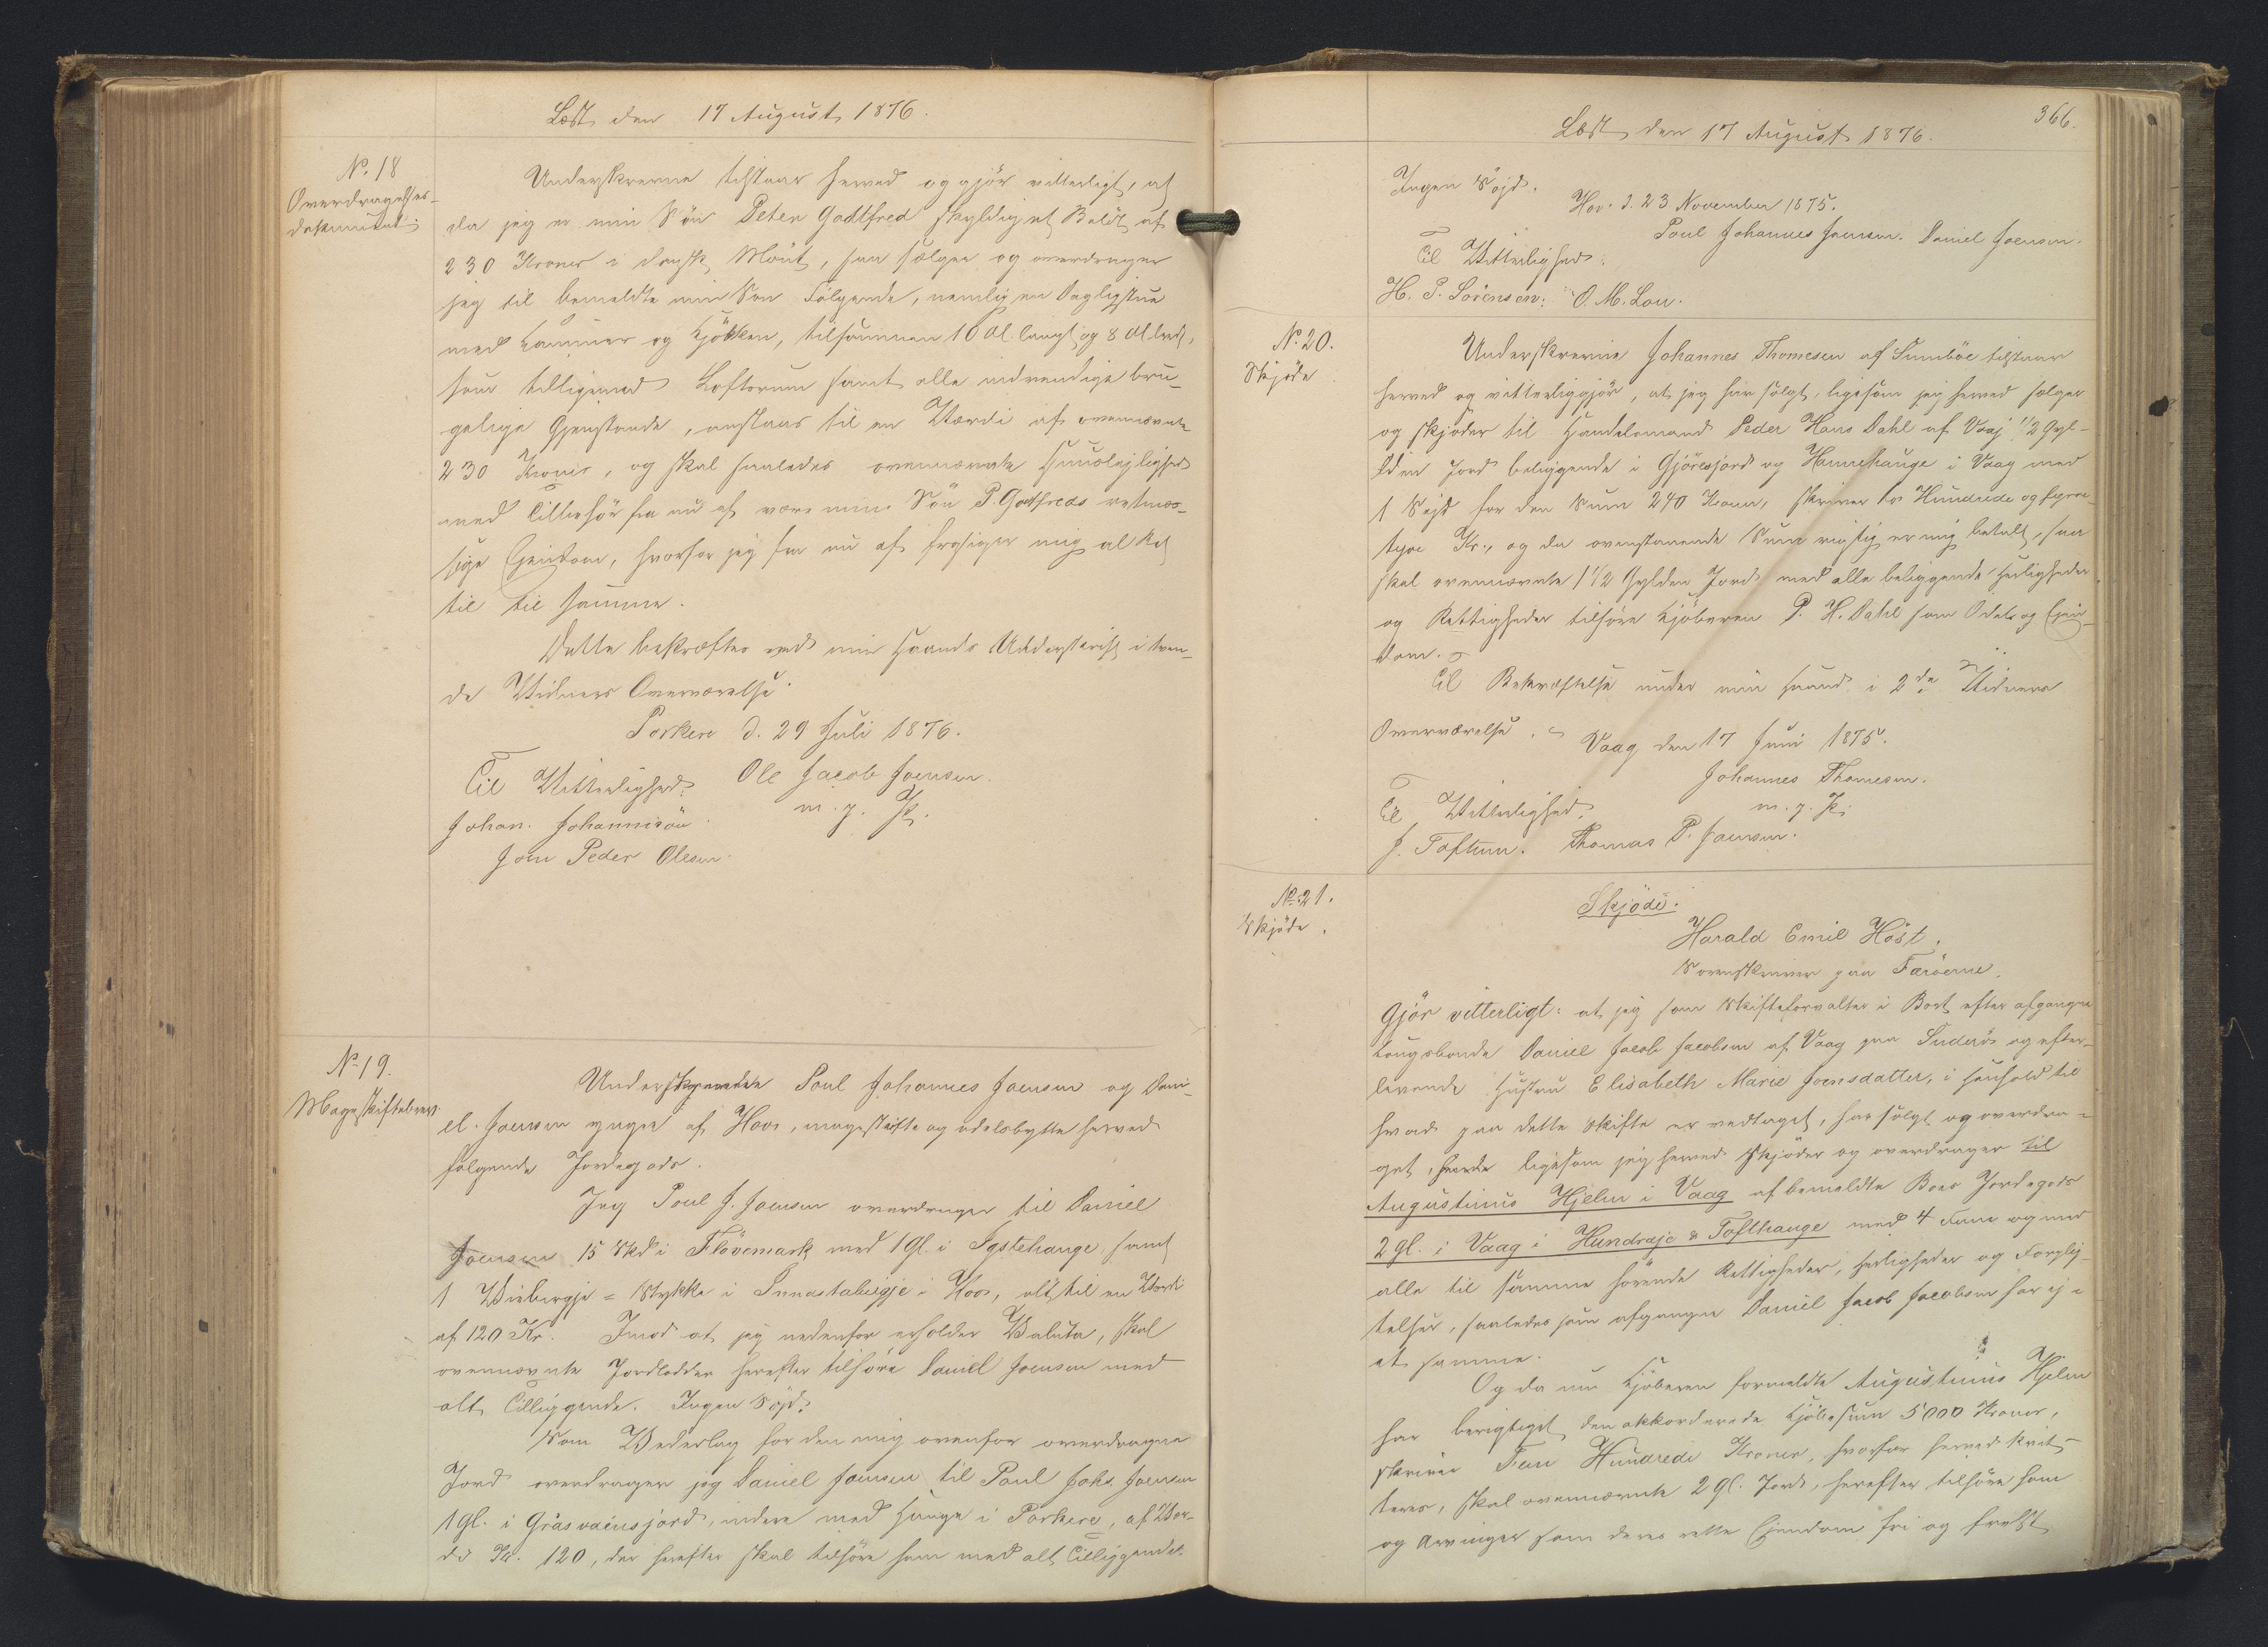 Læst den 17 August 1876.
No. 18
Overdragelses-
dokument
Underskrevne tilstaar herved og gjör vitterligt, at
da jeg er min Sön Peter Godtfred skyldig et Belöb af
230 Kroner i dansk Mönt, saa sælger og overdrager
jeg til bemeldte min Sön Fölgende, nemlig en Dagligstue
med Kammer og Kjökken, tilsammen 10 Al. langt og 8 Al. bredt,
som tilligemed Loftorum samt alle indvendige bru-
gelige Gjenstande, ansees til en Værdi af ovennævnte
230 Kroner, og skal saaledes ovennævnte Huuslejlighed
med Tilbehör fra nu af være min Sön P. Godtfreds retmæs-
sige Ejendom, hvorfor jeg fra nu af frasiger mig al Ret
til til samme.
Dette bekræftes med min Haands Underskrift i tven-
de Vidners Overværelse.
Porkere d. 29 Juli 1876.
Til Vitterlighed: Ole Jacob Joensen.
Johan. Johannesön m. f. P.
Joen Peder Olesen.
No. 19.
Mageskiftebrev.
Underskrevne Poul Johannes Joensen og Dani-
el Joensen af Hove, mageskifte og odelsbytte herved
fölgende Jordegods.
Jeg Poul J. Joensen overdrager til Daniel
Joensen 15 Skd i Flövemark med 1 Gl. i Systehauge samt
1 Stykke i i Hove, alt til en Værdi
af 120 Kr. Imod at jeg nedenfor erholder Valuta, skal
ovennævnte Jordlodder herefter tilhöre Daniel Joensen med
alt Tilliggende. Ingen Söjd.
Som Vederlag for den mig ovenfor overdragne
Jord overdrager jeg Daniel Joensen til Poul Johs. Joensen
1 Gl. i Gräsvaensjord, indere med Hauge i Porkere, af Vær-
di Kr. 120, der herefter skal tilhöre ham med alt Tilliggende.
366.
Læst den 17 August 1876.
Ingen Söjd.
Hov. d. 23 November 1875.
Poul Johannes Joensen. Daniel Joensen.
Til Vitterlighed:
H. P. Sörensen. O. M. Lou.
No. 20.
Skjöde
Underskrevne Johannes Thomesen af Sumböe tilstaar
herved og vitterliggjör, at jeg har solgt, ligesom jeg herved sælger
og skjöder til Handelsmand Peder Hans Dahl af Vaag 1 1/2 Gyl-
den Jord beliggende i Gjöresjord og Hannehauge i Vaag med
1 Söjd for den Sum 240 Kroner, skriver to Hundrede og fyrre-
tyve Kr., og da ovenstaaende Sum rigtig er mig betalt, saa
skal ovennævnte 1 1/2 Gylden Jord med alle beliggende Herligheder
og Rettigheder tilhöre Kjöberen P. H. Dahl som Odel og Ejen-
dom.
Til Bekræftelse under min Haand i 2de Vidners
Overværelse.
Vaag den 17 Juni 1875.
Johannes Thomesen.
Til Vitterlighed: m. f. P.
J. Toftum. Thomas P. Joensen.
No. 21.
Skjöde.
Skjöde.
Harald Emil Höst,
Sorenskriver paa Færöerne,
Gjör vitterligt: at jeg som Skifteforvalter i Boet efter afgangne
Kongsbonde Daniel Jacob Jacobsen af Vaag paa Suderö og efter-
levende Hustru Elisabeth Marie Joensdatter, i Henhold til
hvad paa dette Skifte er vedtaget, har solgt og overdra-
get, ligesom jeg herved skjöder og overdrager til
Augustinus Hjelm i Vaag af bemeldte Boes Jordegods
2 Gl. i Vaag i Hundraje & Tofthauge med 4 Faar og med
alle til samme hörende Rettigheder, Herligheder og Forplig-
telser, saaledes som afgangne Daniel Jacob Jacobsen har ej-
et samme.
Og da nu Kjöberen formeldte Augustinus Hjelm
har berigtiget den akkorderede Kjöbesum 5000 Kroner,
skriver Fem Hundrede Kroner, hvorfor herved kvit-
teres, skal ovennævnte 2 Gl. Jord, herefter tilhöre ham
og Arvinger som deres rette Ejendom fri og frelst